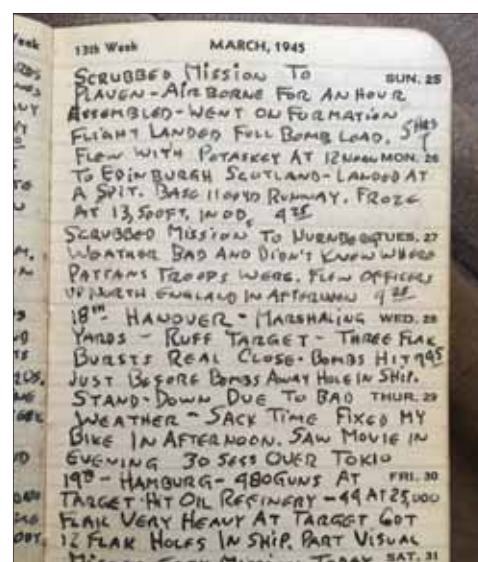 13th Week MARCH, 1945
SCRUBBED MISSION TO SUN. 25
PLAUEN - AIRBORNE FOR AN HOUR
ASSEMBLED - WENT ON FORMATION
FLIGHT LANDED FULL BOMB LOAD.
FLEW WITH POTASKEY AT 12 NOON MON. 26
TO EDINBURGH SCOTLAND - LANDED AT
A SPIT. BASE RUNWAY. FROZE
AT 13,500 FT. IN OD,
SCRUBBED MISSION TO NURNBERG TUES. 27
WEATHER BAD AND DIDN'T KNOW WHERE
PATTANS TROOPS WERE. FLEW OFFICERS
UP NORTH ENGLAND IN AFTERNOON
18TH - HANOVER - MARSHALING WED. 28
YARDS - RUFF TARGET - THREE FLAK
BURSTS REAL CLOSE. BOMBS HIT
JUST BEFORE BOMBS AWAY HOLE IN SHIP.
STAND-DOWN DUE TO BAD THUR. 29
WEATHER - SACK TIME FIXED MY
BIKE IN AFTERNOON. SAW MOVIE IN
EVENING 30 SECS OVER TOKIO
19TH - HAMBURG - 480 GUNS AT FRI. 30
TARGET - HIT OIL REFINERY - 44 AT 25,000
FLAK VERY HEAVY AT TARGET GOT
12 FLAK HOLES IN SHIP. PART VISUAL
MISSION TODAY SAT. 31